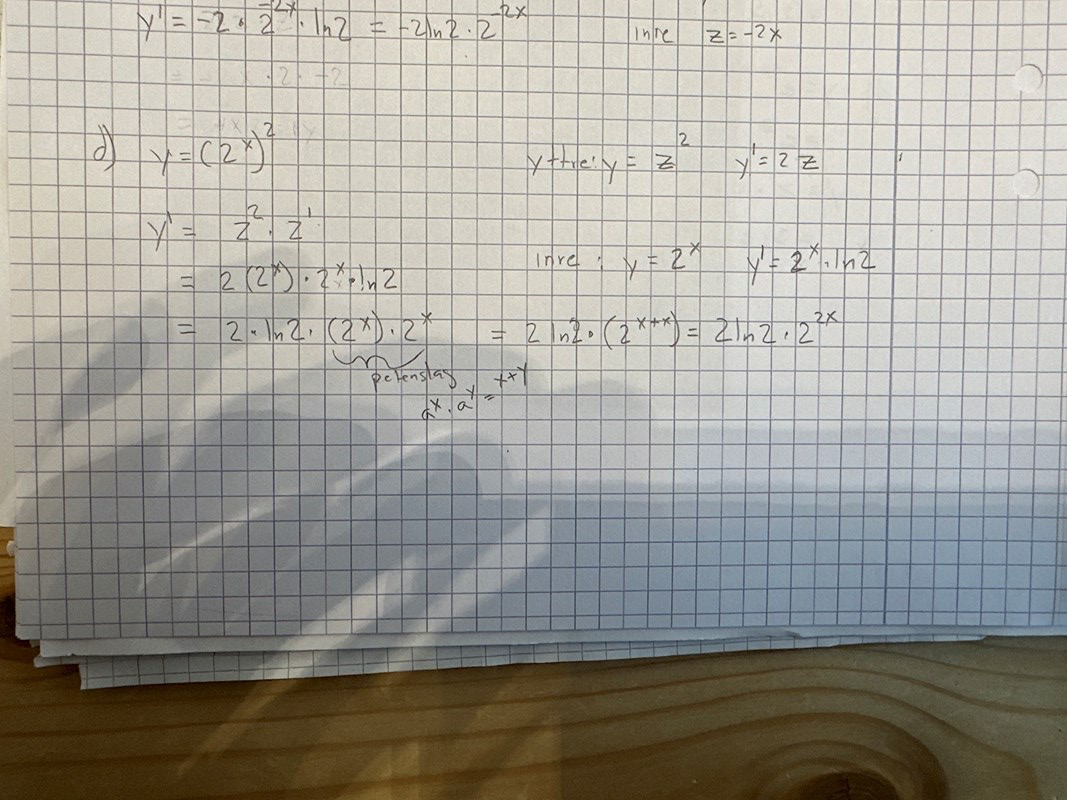 y' = -2 · 2^-2x · ln2 = -2ln2 · 2^-2x
inre z = -2x
d) y = (2^x)^2
yttre: y = z^2 y' = 2z
y' = z^2 · z'
inre : y = 2^x y' = 2^x · ln2
= 2(2^x) · 2^x · ln2
= 2 · ln2 · (2^x) · 2^x = 2 ln2 · (2^x+x) = 2 ln2 · 2^2x
potenslag
a^x · a^y = x+y